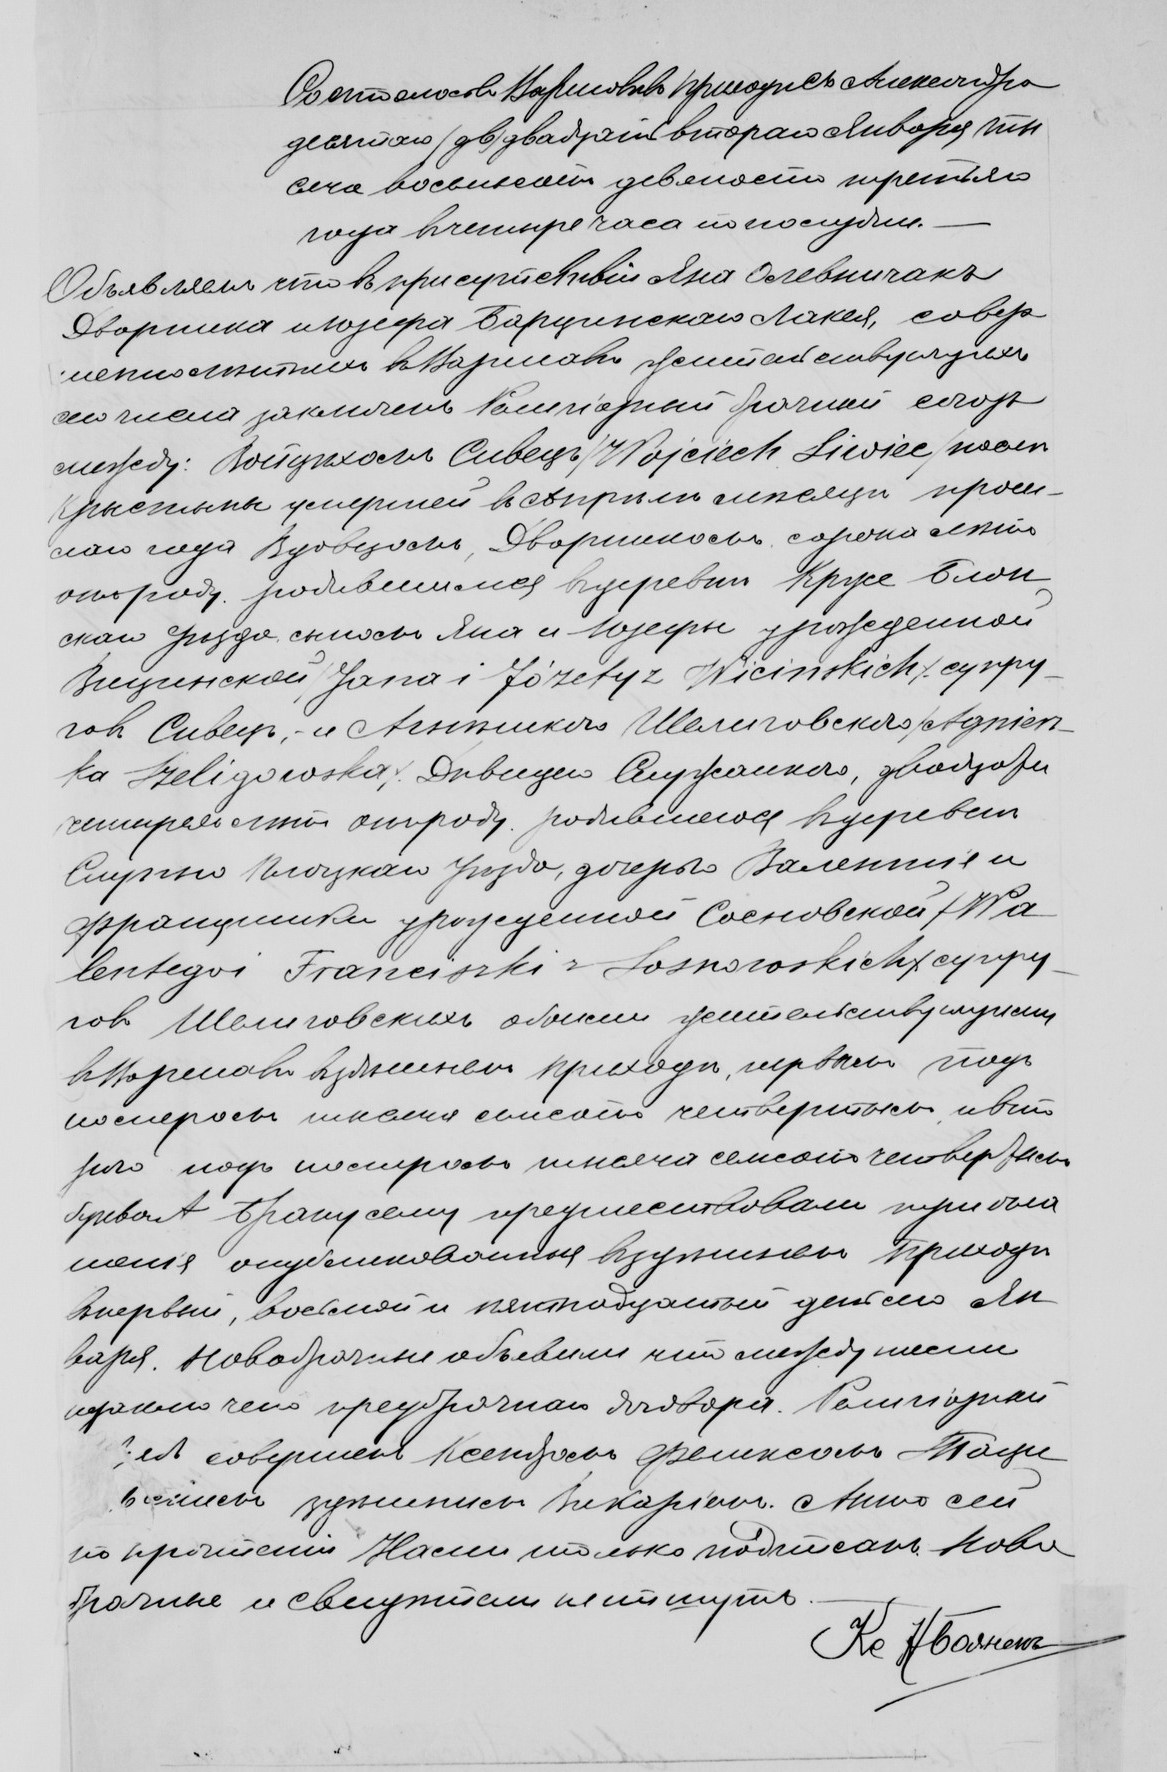 Состоялось въ Варшавѣ въ приходѣ Св Александра
десятаго /дв/ двадцать втораго Января ты
сяча восемьсотъ девяносто третьяго
года въ четыре часа по полудни. —
Объявляемъ что въ присутствіи Яна Олевничакъ
Дворника и Юзефа Барцинскаго Лакея, совер
шеннолѣтнихъ въ Варшавѣ жительствующихъ
сего числа заключенъ Религіозный брачный союзъ
между: Войцѣхомъ Сивецъ /Wojciech Siwiec/ послѣ
Крыстыны умершей въ Апрѣлѣ мѣсяцѣ прош-
лаго года Вдовцомъ, Дворникомъ сорока лѣтъ
отъ роду. родившимся въ деревнѣ Круже Блон
скаго уѣзда. сыномъ Яна и Юзефы урожденной
Вицинской /Jana i Józefy z Wicinskich/. супру-
говъ Сивецъ, - и Агнѣшкою Шелиговскою /Agniesz-
ka Szeligowska/. Дѣвицею Служанкою, двадцати
четырехъ лѣтъ отъ роду. родившеюся въ деревнѣ
Слупно Плоцкаго Уѣзда, дочерью Валентія и
Францишки урожденной Сосновской /Wa
lentego i Franciszki z Sosnowskich/ супру-
говъ Шелиговскихъ обоими жительствующими
въ Варшавѣ въ здѣшнемъ приходѣ, первымъ подъ
номеромъ тысяча семьсотъ четвертымъ, и вто
рою подъ номеромъ тысяча семьсотъ четвертымъ
буква А Браку сему предшествовали три огла
шенія опубликованныя въ здѣшнемъ Приходѣ
въ первый, восьмой и пятнадцатый день сего Ян
варя. Новобрачные объявили что между ними
не заключено предбрачнаго договора. Религіозный
совершенъ Ксендзомъ Феликсомъ
здѣшнимъ Викаріемъ. Актъ сей
по прочтеніи Нами только подписанъ. Ново
брачные и Свидѣтели не пишутъ. —
Кс